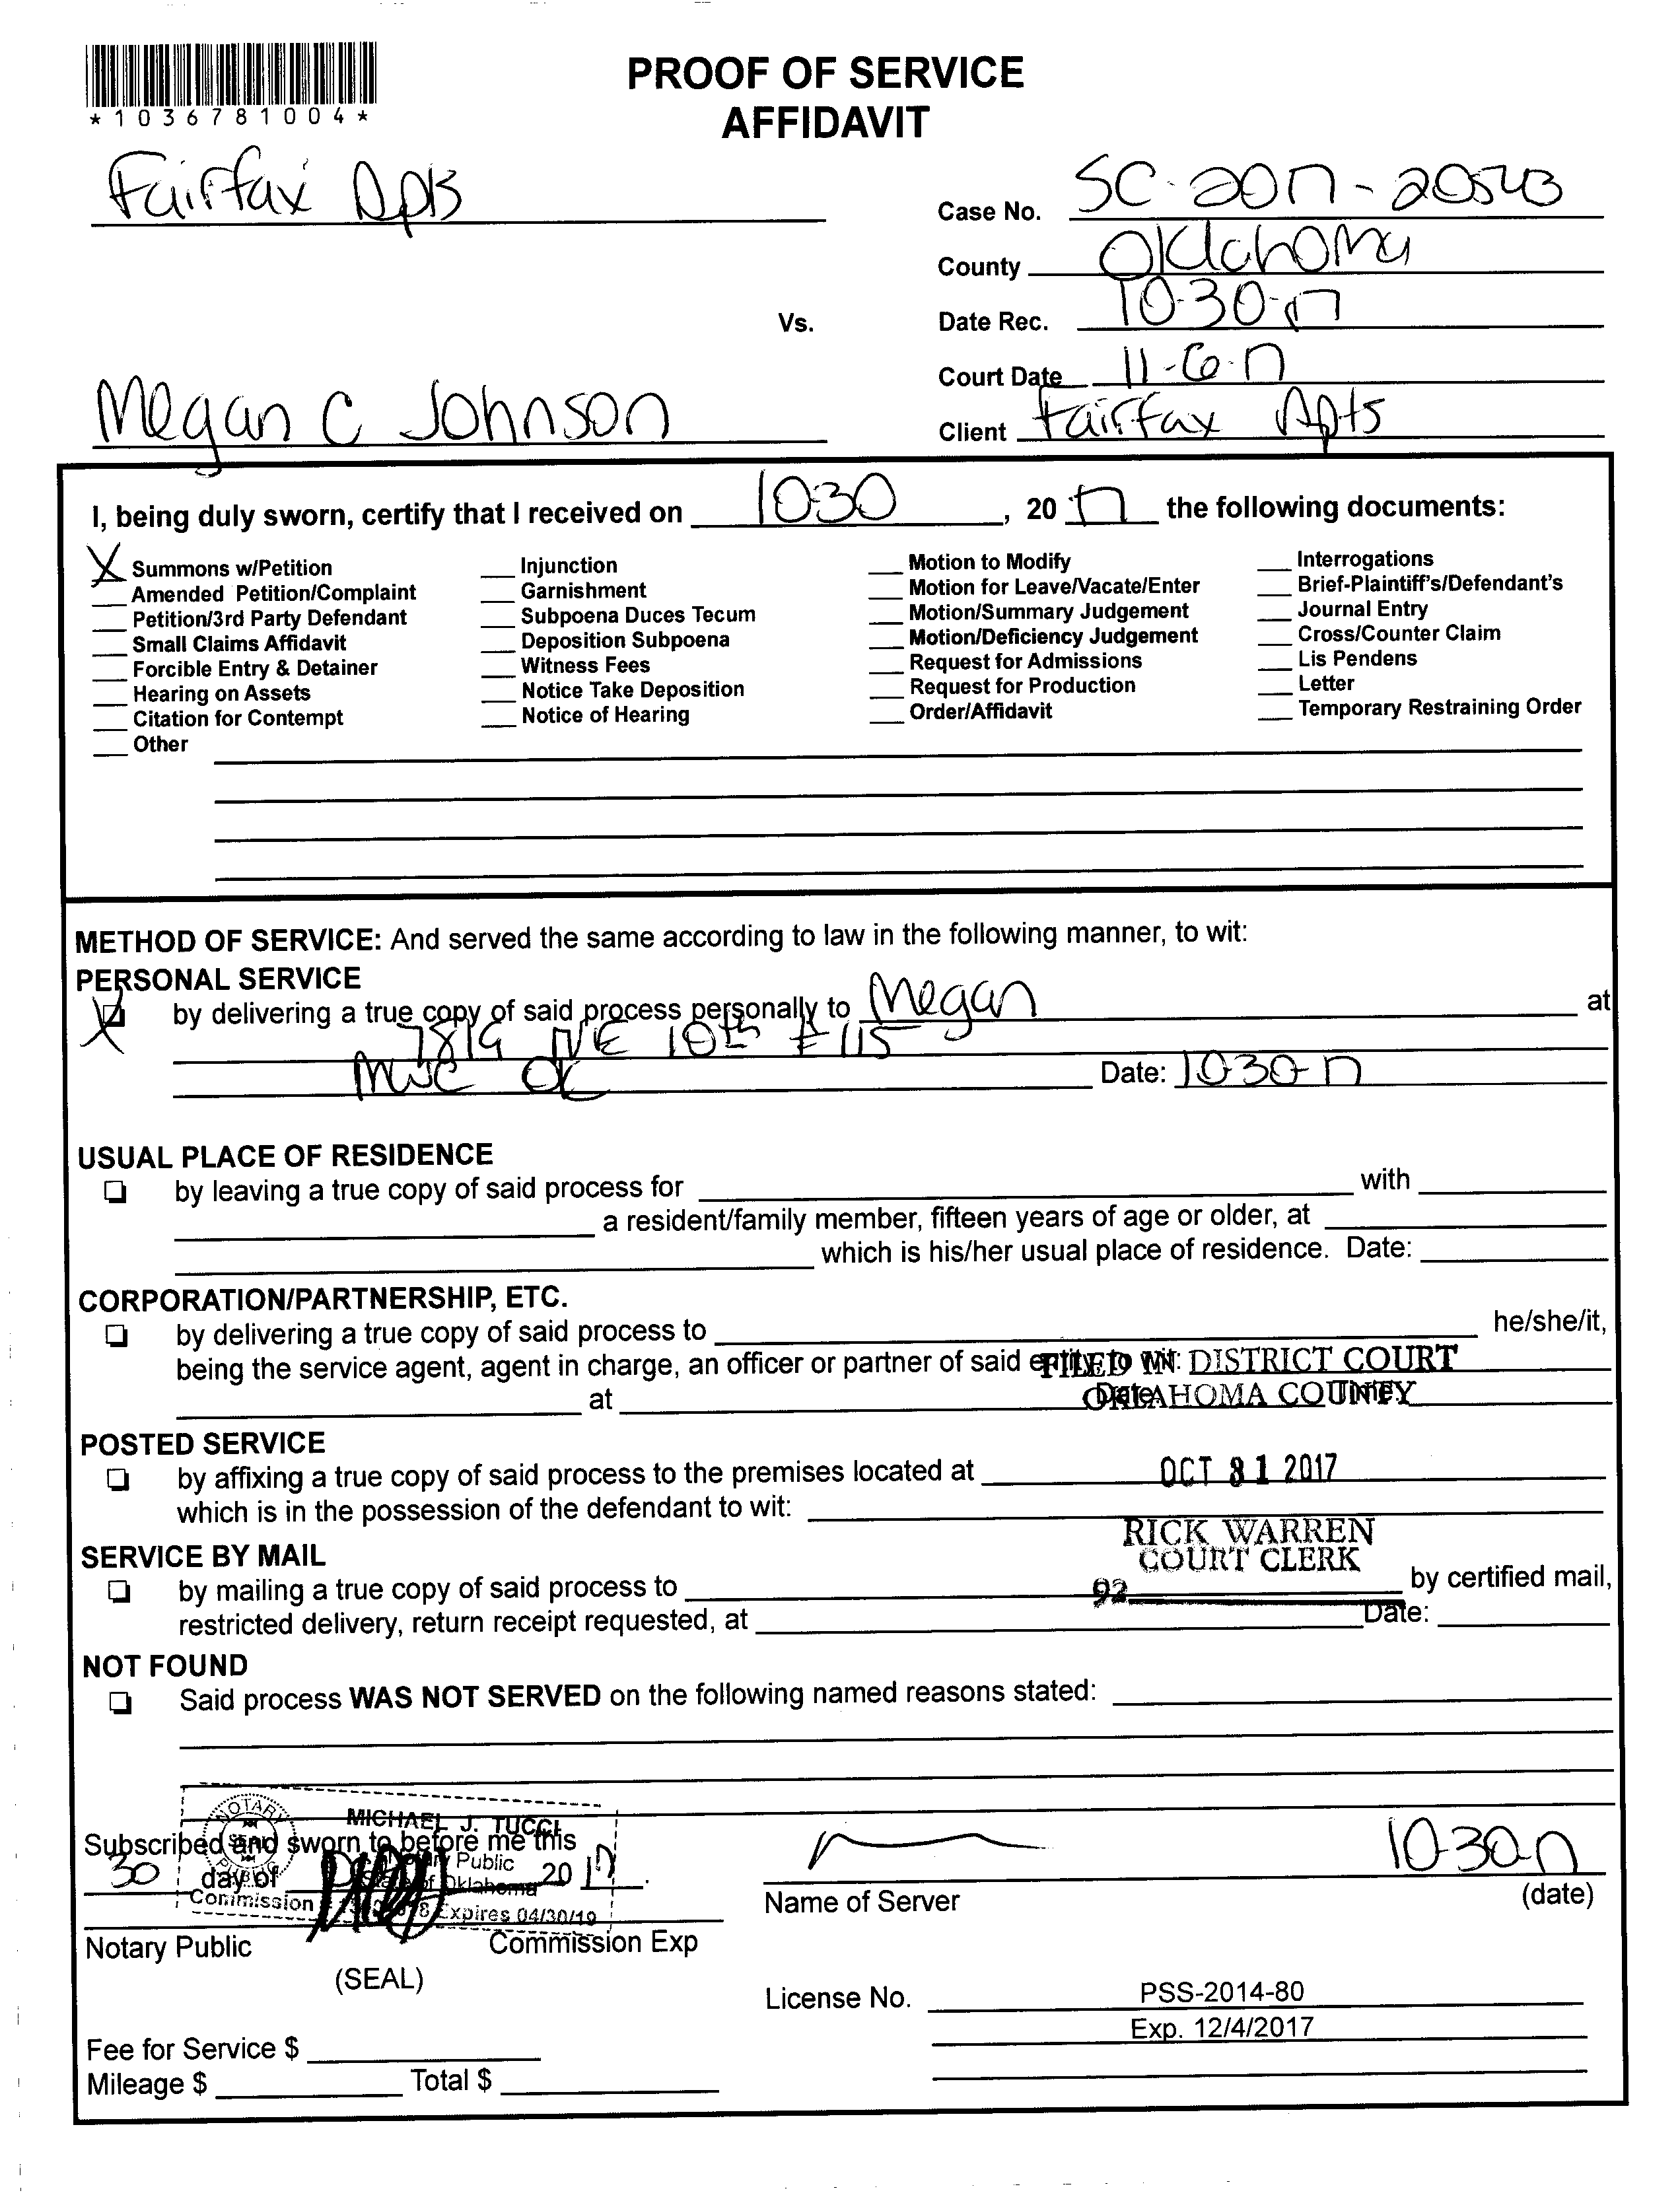 *1036781004*
PROOF OF SERVICE
AFFIDAVIT
Fairfax Apts
Case No. SC-2017-20543
County Oklahoma
Date Rec. 10-30-17
Vs.
Court Date 11-6-17
Megan C Johnson
Client Fairfax Apts
I, being duly sworn, certify that I received on 1030, 20 17 the following documents:
X Summons w/Petition
Amended Petition/Complaint
Petition/3rd Party Defendant
Small Claims Affidavit
Forcible Entry & Detainer
Hearing on Assets
Citation for Contempt
Other
Injunction
Garnishment
Subpoena Duces Tecum
Deposition Subpoena
Witness Fees
Notice Take Deposition
Notice of Hearing
Motion to Modify
Motion for Leave/Vacate/Enter
Motion/Summary Judgement
Motion/Deficiency Judgement
Request for Admissions
Request for Production
Order/Affidavit
Interrogations
Brief-Plaintiff's/Defendant's
Journal Entry
Cross/Counter Claim
Lis Pendens
Letter
Temporary Restraining Order
METHOD OF SERVICE: And served the same according to law in the following manner, to wit:
PERSONAL SERVICE
X by delivering a true copy of said process personally to Megan at
7819 NE 10th #115
MWC OK Date: 10-30-17
USUAL PLACE OF RESIDENCE
by leaving a true copy of said process for with
a resident/family member, fifteen years of age or older, at
which is his/her usual place of residence. Date:
CORPORATION/PARTNERSHIP, ETC.
by delivering a true copy of said process to he/she/it,
being the service agent, agent in charge, an officer or partner of said entity, to wit:
at Date Time
FILED IN DISTRICT COURT
OKLAHOMA COUNTY
POSTED SERVICE
by affixing a true copy of said process to the premises located at
OCT 31 2017
which is in the possession of the defendant to wit:
RICK WARREN
COURT CLERK
SERVICE BY MAIL
by mailing a true copy of said process to by certified mail,
92
restricted delivery, return receipt requested, at Date:
NOT FOUND
Said process WAS NOT SERVED on the following named reasons stated:
NOTARY PUBLIC
SEAL
MICHAEL J. TUCCI
Notary Public
State of Oklahoma
Commission Expires 04/30/19
Subscribed and sworn to before me this
30 day of 20 17.
10-30-17
Name of Server (date)
Notary Public Commission Exp
(SEAL)
License No. PSS-2014-80
Exp. 12/4/2017
Fee for Service $
Mileage $ Total $